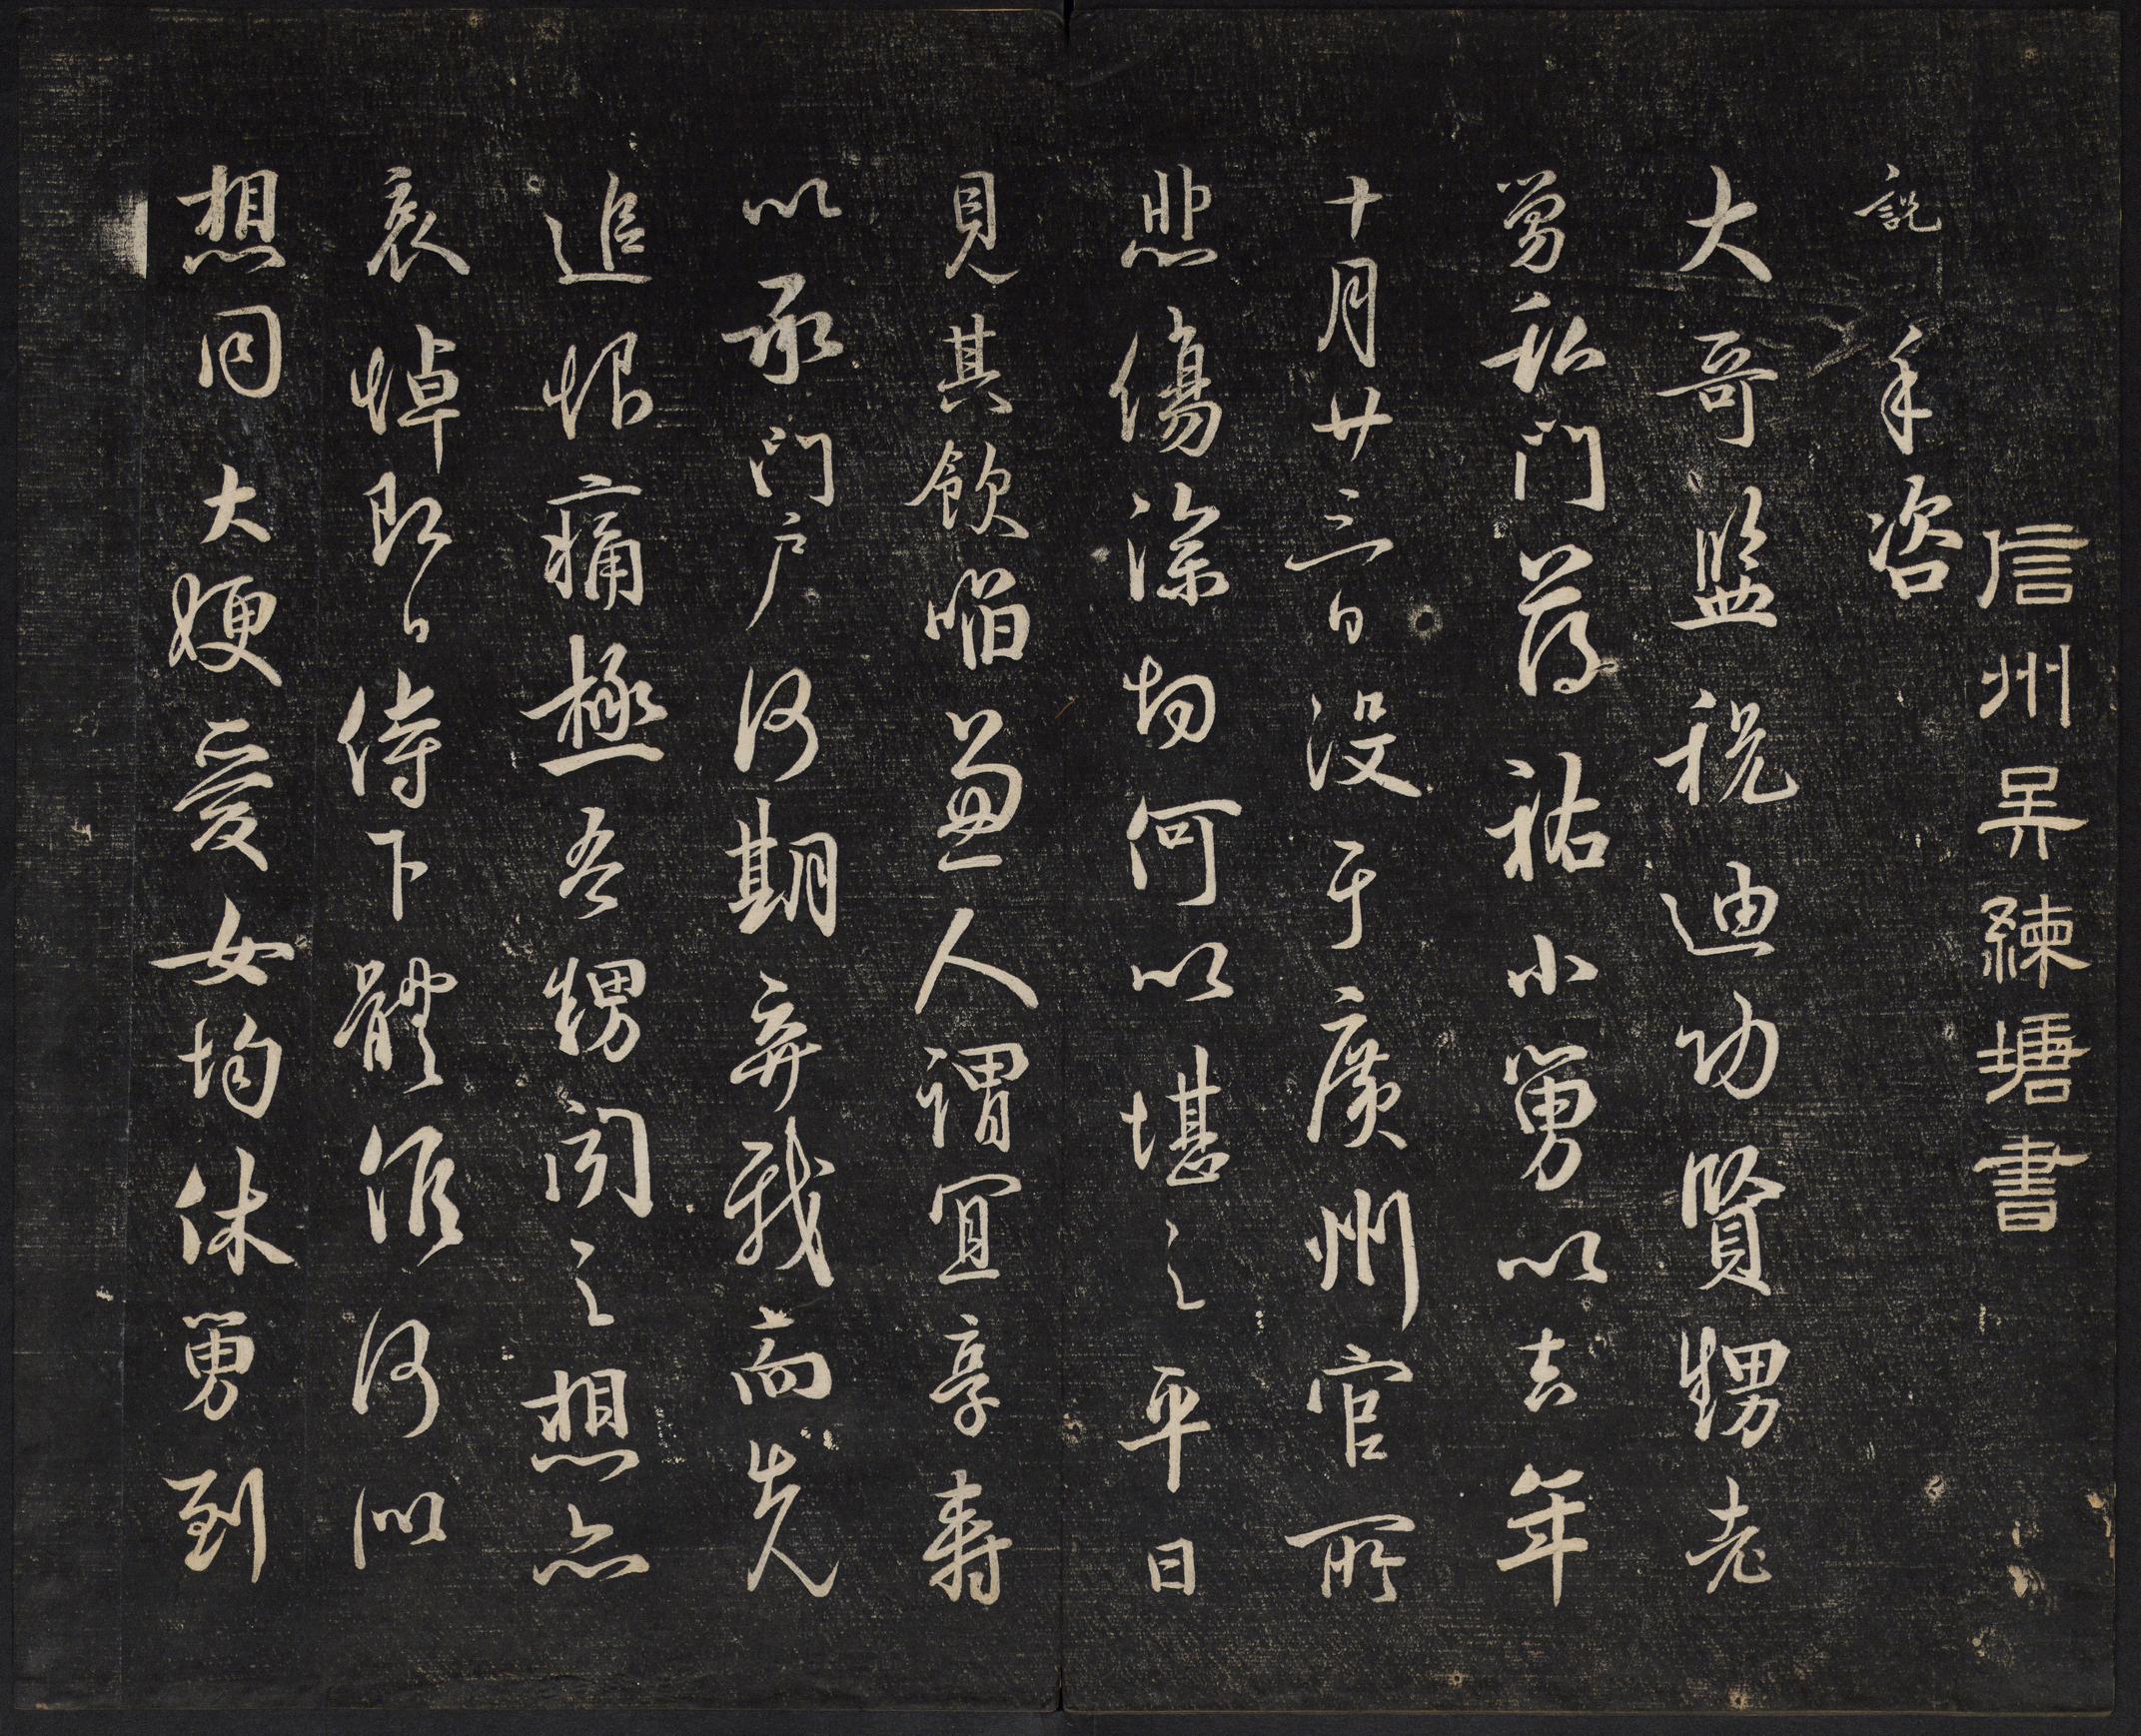 信州吳練塘書
説手咨
大哥監税迪功賢甥老
舅私門薄祜小舅以去年
十月廿三日没于廣州官所
悲傷深切何以堪之平日
見其飲啗兼人謂宜享壽
以承門户何期弃我而先
追恨痛極吾甥聞之想亦
哀悼即日侍下體候何似
想同大娌愛女均休舅到